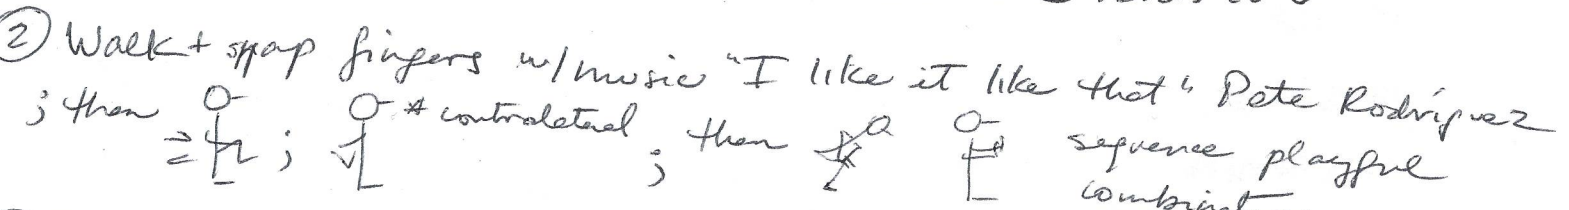 ② Walk + snap fingers w/ music "I like it like that" Pete Rodríguez
; then ; * contralateral ; then sequence playful